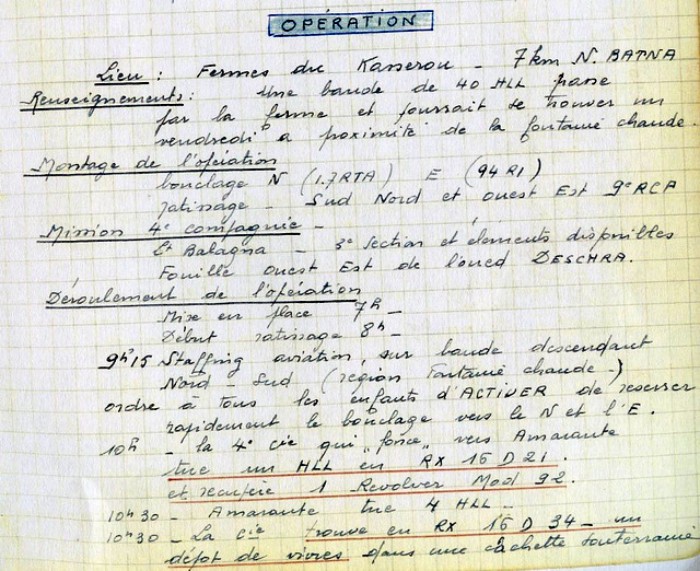 OPÉRATION
Lieu : Fermes du Kasserou - 7km N. BATNA
Renseignements : Une bande de 40 HLL passe
par la ferme et pourrait se trouver un
vendredi à proximité de la fontaine chaude.
Montage de l'opération
bouclage N (1.7RTA) E (94 RI)
ratissage - Sud Nord et ouest Est 9e RCP
Mission 4e compagnie -
Lt Balagna - 3e Section et éléments disponibles
Fouille ouest Est de l'oued DESCHRA.
Déroulement de l'opération
Mise en place 7h -
Début ratissage 8h -
9h15 Staffing aviation, sur bande descendant
Nord - Sud (région Fontaine chaude -)
ordre à tous les enfants d'ACTIVER de resserer
rapidement le bouclage vers le N et l'E.
10h - la 4e cie qui "force" vers Amarante
tue un HLL en RX 16 D 21.
et récupère 1 Revolver Mod 92.
10h30 - Amarante tue 4 HLL -
10h30 - La cie trouve en RX 16 D 34 - un
dépot de vivres dans une cachette souterraine